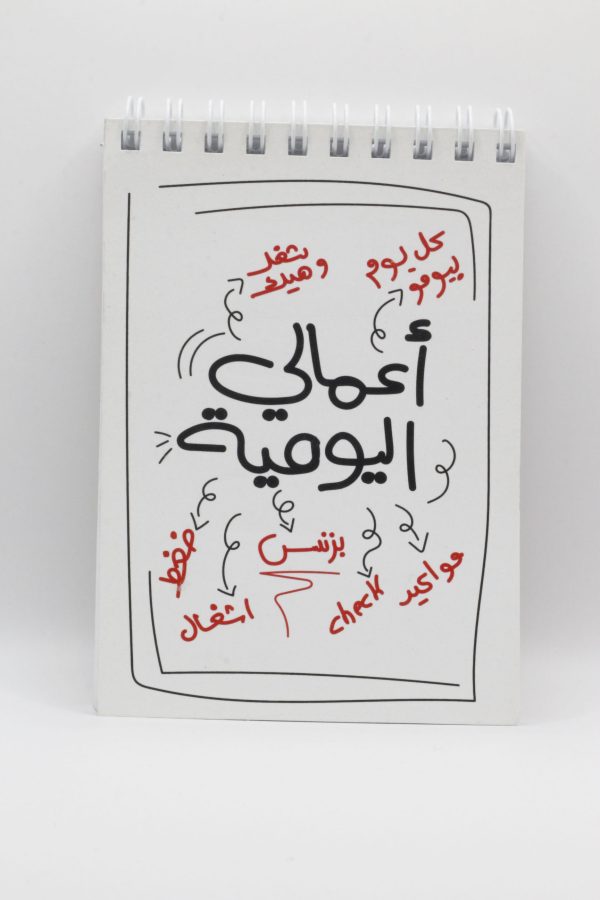 كل يوم
بيومو
شغل
وهيك
أعمالي
اليومية
مواعيد
check
بزنس
اشغال
ضغط